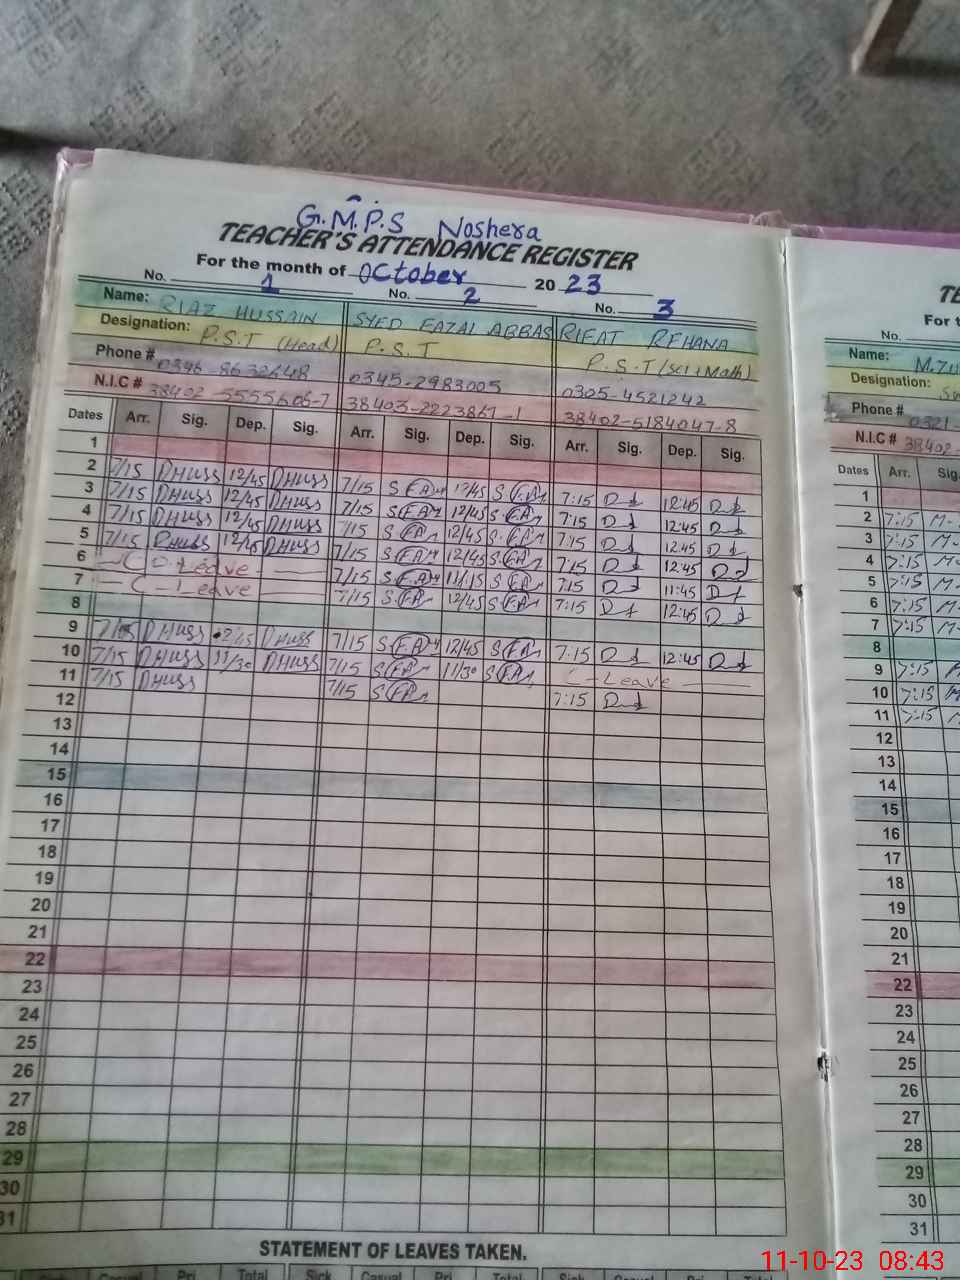 G.M.P.S Noshera
TEACHER'S ATTENDANCE REGISTER
For the month of October 2023
No. 1 No. 2 No. 3
Name: RIAZ HUSSAIN SYED FAZAL ABBAS RIFAT REHANA
Designation: P.S.T (Head) P.S.T P.S.T (Sci+Math)
Phone # 0346-8632648 0345-2983005 0305-4521242
N.I.C # 38402-5555605-7 38403-2223867-1 38402-5184047-8
Dates Arr. Sig. Dep. Sig. Arr. Sig. Dep. Sig. Arr. Sig. Dep. Sig.
1
2 7/15 DHUSS 12/45 DHUSS 7/15 S F.A 12/45 S F.A 7:15 12:45
3 7/15 DHUSS 12/45 DHUSS 7/15 S F.A 12/45 S F.A 7:15 12:45
4 7/15 DHUSS 12/45 DHUSS 7/15 S FA 12/45 S. FA 7:15 12:45
5 7/15 DHUSS 12/45 DHUSS 7/15 S F.A 12/45 S FA 7:15 12:45
6 C - Leave 7/15 S F.A 11/15 S FA 7:15 11:45
7 C - Leave 7/15 S FA 12/45 S FA 7:15 12:45
8
9 7/15 DHUSS 12/45 DHUSS 7/15 S F.A 12/45 S FA 7:15 12:45
10 7/15 DHUSS 11/30 DHUSS 7/15 S FA 11/30 S FA C-Leave
11 7/15 DHUSS 7/15 S FA 7:15
12
13
14
15
16
17
18
19
20
21
22
23
24
25
26
27
28
29
30
31
STATEMENT OF LEAVES TAKEN.
Sick Casual Pri. Total Sick Casual Pri. Total Sick Casual Pri. Total
TE
For t
No.
Name: M.
Designation:
Phone # 0321-
N.I.C # 38402-
Dates Arr. Sig.
1
2 7:15 M-
3 7:15 M-
4 7:15 M-
5 7:15 M-
6 7:15 M-
7 7:15 M-
8
9 7:15 M
10 7:15 M
11 7:15
12
13
14
15
16
17
18
19
20
21
22
23
24
25
26
27
28
29
30
31
11-10-23 08:43